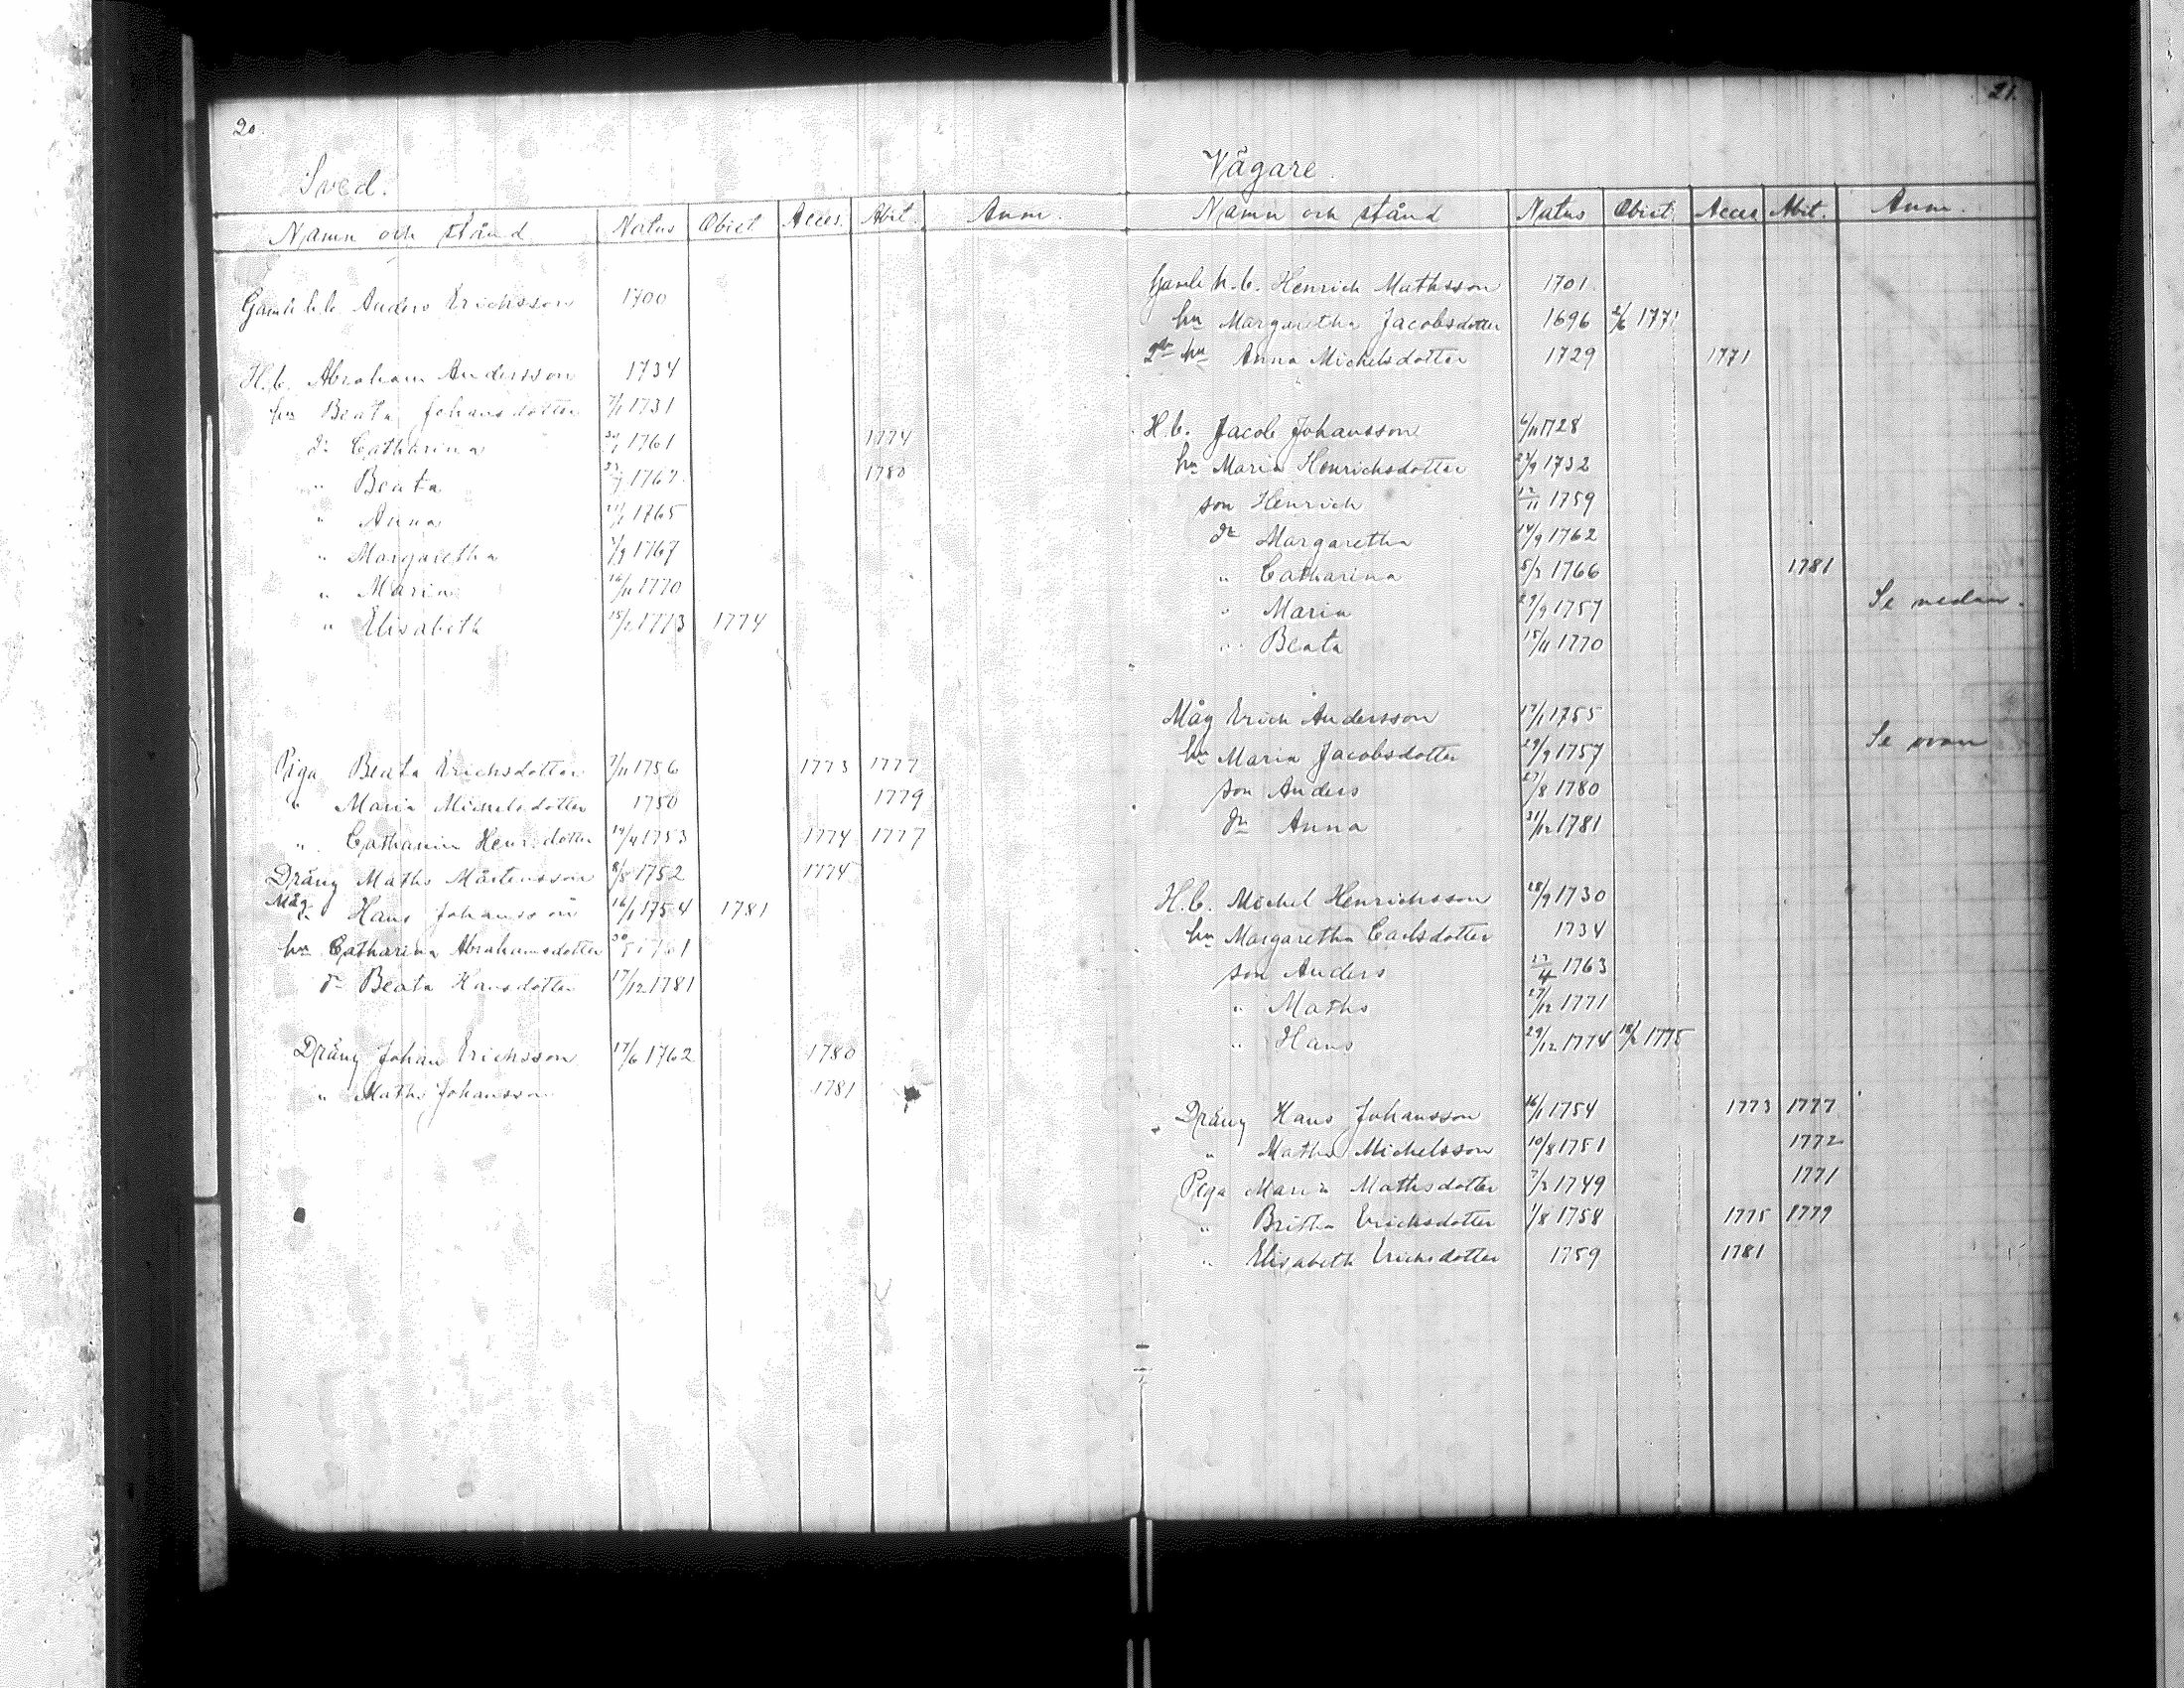 20.
Sved.
Namn och stånd Natus Obiet Acces. Abit. Anm.
Gamle h.b. Anders Erichsson 1700
H.b. Abraham Andersson 1734
hu Beata Johansdotter 1731
dr Catharina 1761 1774
" Beata 1780
" Anna 1765
" Margaretha 1767
" Maria 16/11 1770
" Elisabeth 1773 1774
Piga Beata Erichsdotter 7/11 1756 1773 1777
" Maria Michelsdotter 1750 1779
" Catharina Henr.dotter 1753 1774 1777
Dräng Maths Mårtensson 8/8 1752 1774
Måg " Hans Johansson 16/1 1754 1781
hu Catharina Abrahamsdotter 1761
dr Beata Hansdotter 17/12 1781
Dräng Johan Erichsson 17/6 1762 1780
" Maths Johansson 1781
21.
Vägare.
Namn och stånd Natus Obiet Acces Abit. Anm.
Gamle h.b. Henrich Mathsson 1701
hu Margaretha Jacobsdotter 1696 2/6 1771
2dr hu Anna Michelsdotter 1729 1771
H.b. Jacob Johansson 6/11 1728
hu Maria Henrichsdotter 1732
son Henrich 12/11 1759
dr Margaretha 14/9 1762
" Catharina 1766 1781
" Maria 29/9 1757 Se nedan.
" Beata 15/11 1770
Måg Erich Andersson 17/1 1755
hu Maria Jacobsdotter 29/9 1757 Se ovan
son Anders 27/8 1780
dr Anna 21/12 1781
H.b. Michel Henrichsson 28/9 1730
hu Margaretha Carlsdotter 1734
son Anders 1763
" Maths 27/12 1771
" Hans 29/12 1774 1775
Dräng Hans Johansson 16/1 1754 1773 1777
" Maths Michelsson 10/8 1751 1772
Piga Maria Mathsdotter 1749 1771
" Britha Erichsdotter 1/8 1758 1775 1779
" Elisabeth Erichsdotter 1759 1781